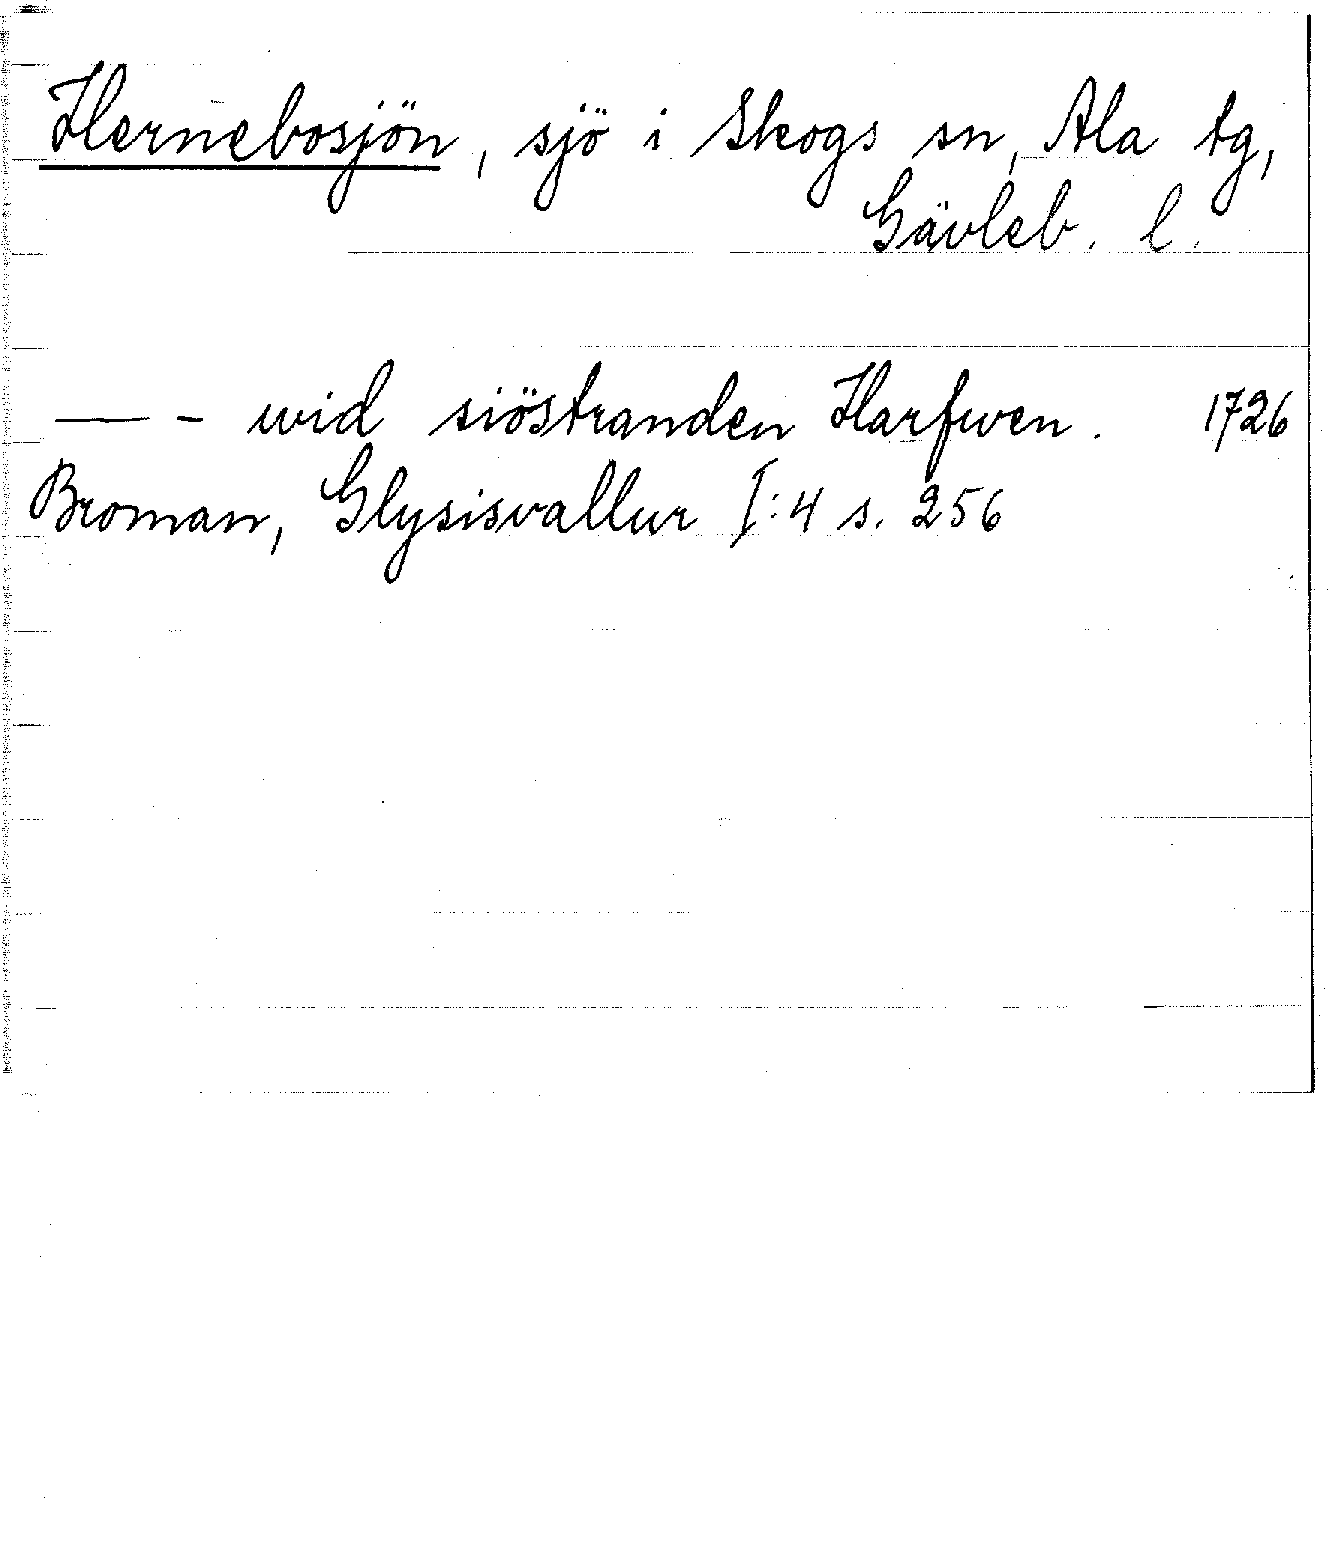 Hernebosjön, sjö i Skogs sn, Ala tg,
Gävleb. l.
— - wid siöstranden Harfwen. 1726
Broman, Glysisvallur I:4 s. 256